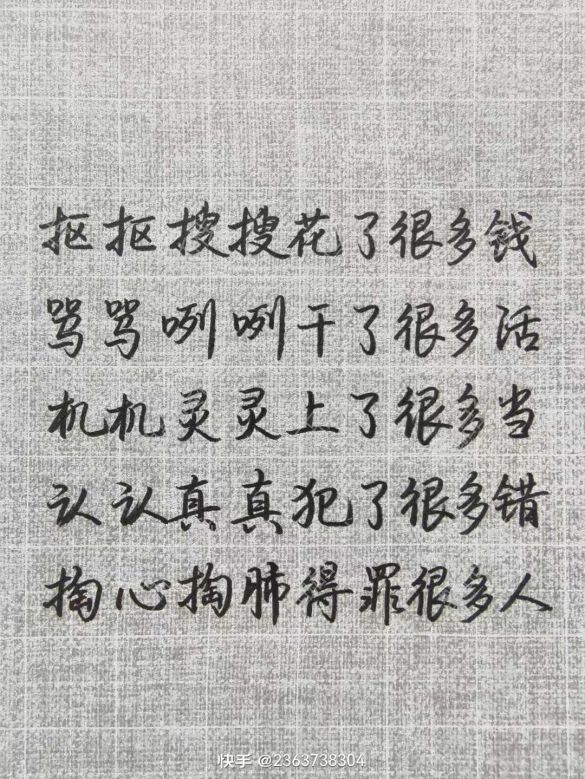 抠抠搜搜花了很多钱
骂骂咧咧干了很多活
机机灵灵上了很多当
认认真真犯了很多错
掏心掏肺得罪很多人
快手 @2363738304